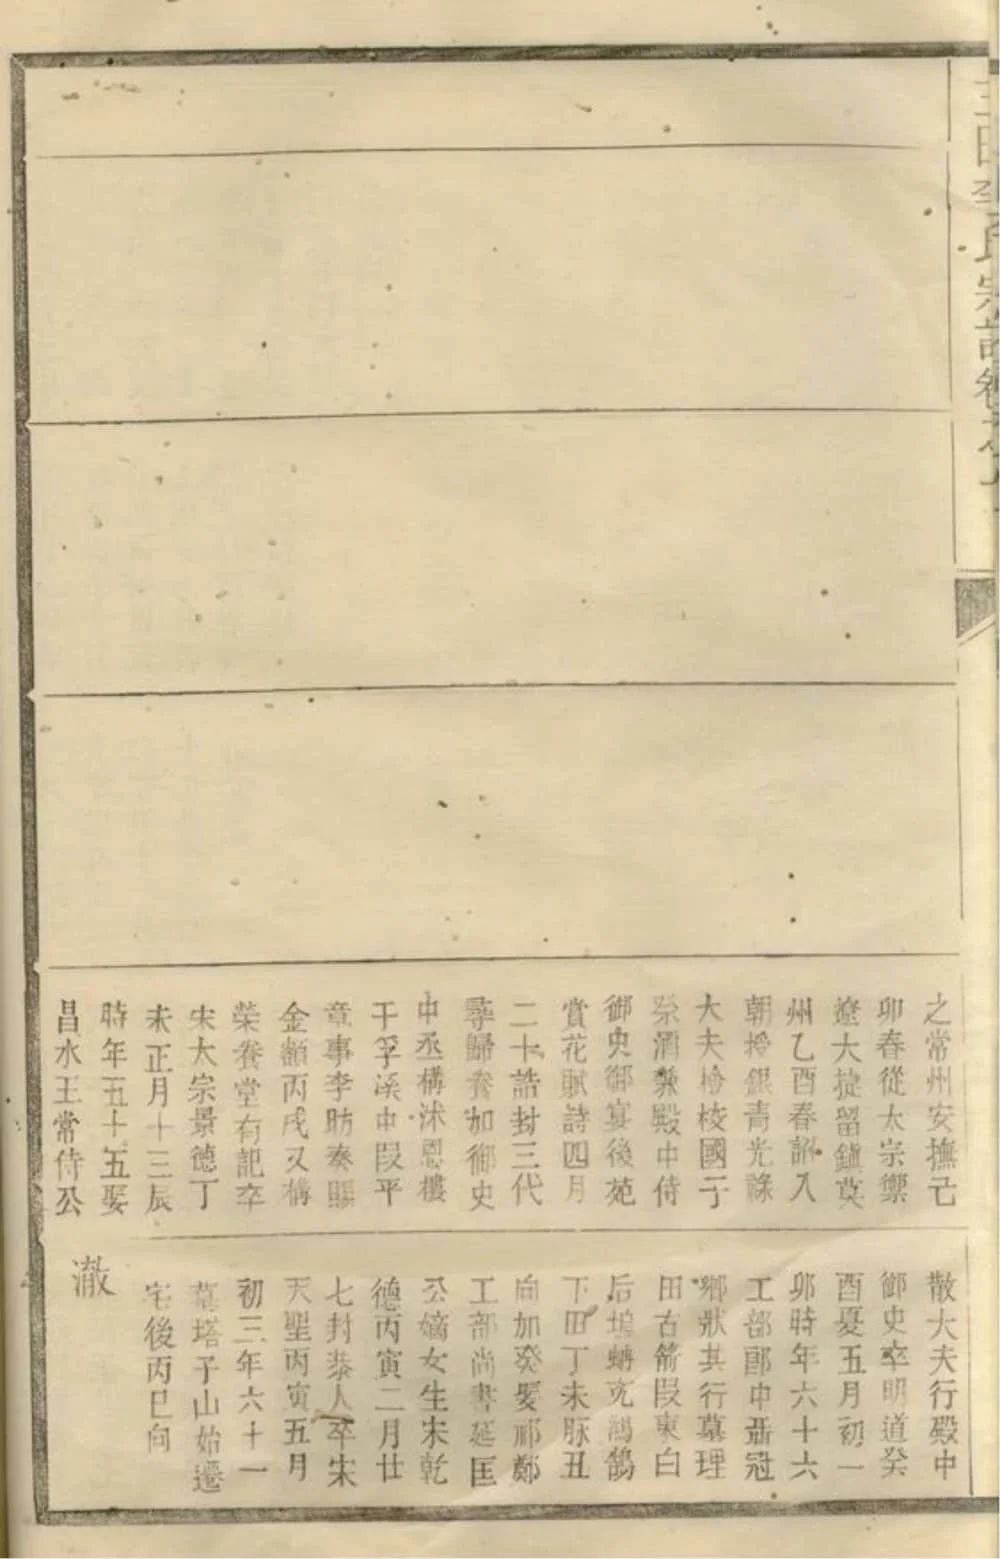 三田李氏宗譜卷之
之常州安撫己
卯春從太宗禦
遼大捷留鎮莫
州乙酉春詔入
朝授銀青光祿
大夫檢校國子
祭酒兼殿中侍
御史御宴後苑
賞花賦詩四月
二十誥封三代
尋歸養加御史
中丞構沐恩樓
于孚溪中段平
章事李昉奏賜
金額丙戌又構
榮養堂有記卒
宋太宗景德丁
未正月十三辰
時年五十五娶
昌水王常侍公
散大夫行殿中
御史卒明道癸
酉憂五月初一
卯時年六十六
工部郎中聶冠
鄉狀其行墓理
田古箭段東白
后塢蟒克鴻鵠
下田丁未脉丑
向加癸娶祁鄭
工部尚書延匡
公嫡女生宋乾
德丙寅二月廿
七封恭人卒宋
天聖丙寅五月
初三年六十一
墓塔子山始遷
宅後丙巳向
澈